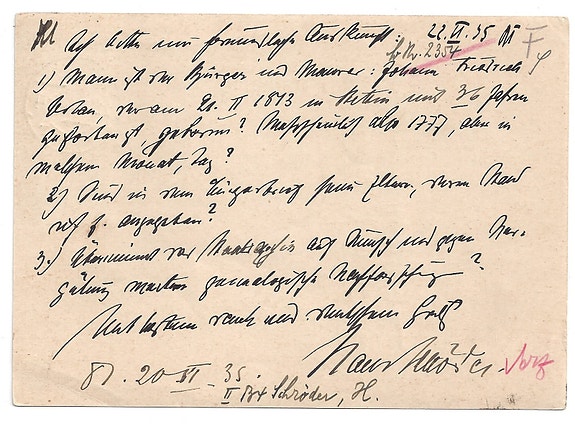 Ich bitte um freundliche Auskunft: 22. VI. 35
Br. Nr. 2354
1) Wann ist der Bürger und Maurer: Johann Friedrich
der am 21. II 1813 in Stettin mit 36 Jahren
geboren? Wahrscheinlich also 1777, aber in
welchem Monat, Tag?
2) Sind in dem Bürgerbuch seine Eltern, deren Stand
usf. angegeben?
3.) Übernimmt das Staatsarchiv auf Wunsch und gegen Ver-
gütung weitere genealogische Nachforschung?
Mit bestem Dank und deutschem Gruß
Hans Schröder.
20 VI. 35.
II Br Schröder, H.